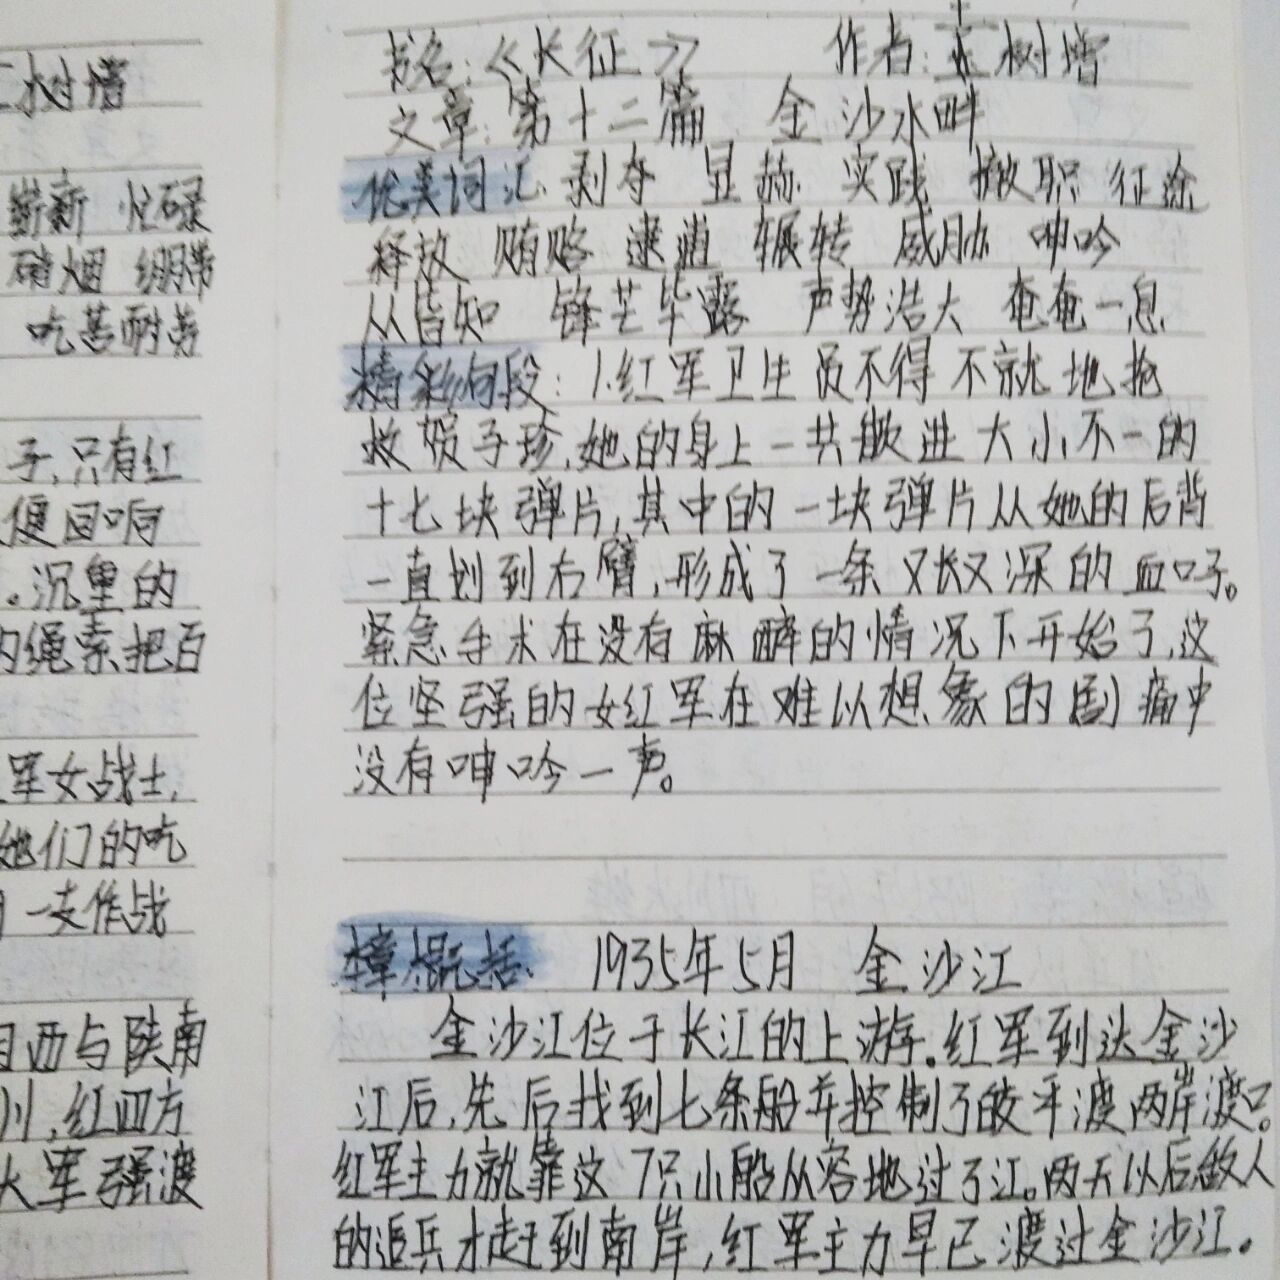 树增
崭新 忙碌
硝烟 绷带
吃苦耐劳
子,只有红
便回响
。沉重的
的绳索把百
军女战士,
她们的吃
一支作战
西与陕南
川,红四方
军强渡
书名:《长征》 作者:王树增
文章:第十二篇 金沙水畔
优美词汇:剥夺 显赫 实践 撤职 征途
释放 贿赂 逮逋 辗转 威胁 呻吟
从皆知 锋芒毕露 声势浩大 奄奄一息
精彩句段:1.红军卫生员不得不就地抢
救贺子珍,她的身上一共嵌进大小不一的
十七块弹片,其中的一块弹片从她的后背
一直划到右臂,形成了一条又长又深的血口子。
紧急手术在没有麻醉的情况下开始了,这
位坚强的女红军在难以想象的剧痛中
没有呻吟一声。
章概括: 1935年5月 金沙江
金沙江位于长江的上游.红军到达金沙
江后,先后找到七条船并控制了皎平渡两岸渡口。
红军主力就靠这7只小船从容地过了江。两天以后敌人
的追兵才赶到南岸,红军主力早已渡过金沙江。